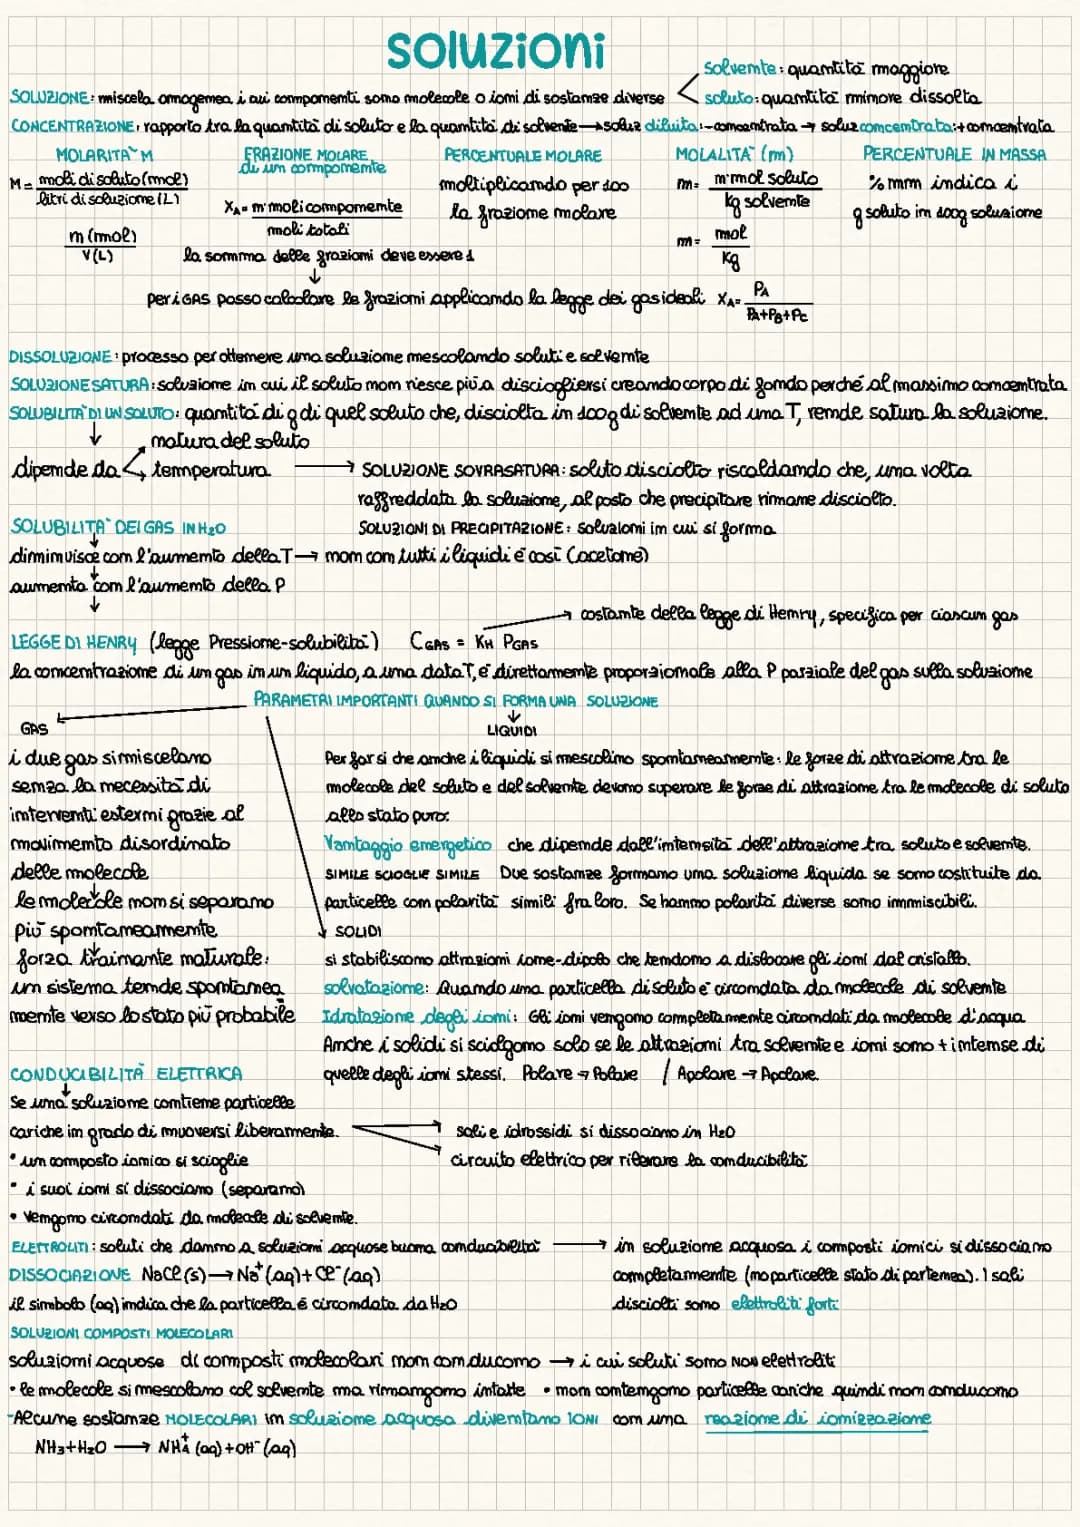 soluzioni
solvente: quantità maggiore
SOLUZIONE: miscela omogenea i cui componenti sono molecole o ioni di sostanze diverse
soluto: quantità minore dissolta
CONCENTRAZIONE: rapporto tra la quantità di soluto e la quantità di solvente → soluz diluita: - concentrata → soluz concentrata: + concentrata
MOLARITÀ M
FRAZIONE MOLARE di un componente
PERCENTUALE MOLARE
MOLALITÀ (m)
PERCENTUALE IN MASSA
M = moli di soluto (mol) / litri di soluzione (L)
n (mol) / V(L)
XA = n° moli componente / moli totali
la somma delle frazioni deve essere 1
moltiplicando per 100
la frazione molare
m = n° mol soluto / kg solvente
m = mol / Kg
% mm indica i
g soluto in 100g soluzione
↓
per i GAS posso calcolare le frazioni applicando la legge dei gas ideali XA = PA / PA+PB+PC
DISSOLUZIONE: processo per ottenere una soluzione mescolando soluti e solvente
SOLUZIONE SATURA: soluzione in cui il soluto non riesce più a disciogliersi creando corpo di fondo perché al massimo concentrata
SOLUBILITÀ DI UN SOLUTO: quantità di g di quel soluto che, disciolta in 100g di solvente ad una T, rende satura la soluzione.
↓
natura del soluto
dipende da temperatura → SOLUZIONE SOVRASATURA: soluto disciolto riscaldando che, una volta
raffreddata la soluzione, al posto che precipitare rimane disciolto.
SOLUBILITÀ DEI GAS IN H2O
SOLUZIONI DI PRECIPITAZIONE: soluzioni in cui si forma
↓
diminuisce con l'aumento della T → non con tutti i liquidi è così (acetone)
↓
aumenta con l'aumento della P
↓
→ costante della legge di Henry, specifica per ciascun gas
LEGGE DI HENRY (legge Pressione-solubilità) CGAS = KH PGAS
la concentrazione di un gas in un liquido, a una data T, è direttamente proporzionale alla P parziale del gas sulla soluzione
PARAMETRI IMPORTANTI QUANDO SI FORMA UNA SOLUZIONE
↓
GAS
i due gas si miscelano
senza la necessità di
interventi esterni grazie al
movimento disordinato
delle molecole
↓
le molecole non si separano
più spontaneamente
↓
forza trainante naturale:
un sistema tende spontanea
mente verso lo stato più probabile
LIQUIDI
Per far si che anche i liquidi si mescolino spontaneamente: le forze di attrazione tra le
molecole del soluto e del solvente devono superare le forze di attrazione tra le molecole di soluto
allo stato puro:
Vantaggio energetico che dipende dall'intensità dell'attrazione tra soluto e solvente.
SIMILE SCIOGLIE SIMILE Due sostanze formano una soluzione liquida se sono costituite da
particelle con polarità simili fra loro. Se hanno polarità diverse sono immiscibili.
SOLIDI
si stabiliscono attrazioni ione-dipolo che tendono a dislocare gli ioni dal cristallo.
solvatazione: Quando una particella di soluto è circondata da molecole di solvente
Idratazione degli ioni: Gli ioni vengono completamente circondati da molecole d'acqua
Anche i solidi si sciolgono solo se le attrazioni tra solvente e ioni sono + intense di
quelle degli ioni stessi. Polare → Polare / Apolare → Apolare.
CONDUCIBILITÀ ELETTRICA
↓
Se una soluzione contiene particelle
cariche in grado di muoversi liberamente. → sali e idrossidi si dissociano in H2O
• un composto ionico si scioglie → circuito elettrico per rilevare la conducibilità
• i suoi ioni si dissociano (separano)
• Vengono circondati da molecole di solvente.
ELETTROLITI: soluti che danno a soluzioni acquose buona conducibilità → in soluzione acquosa i composti ionici si dissociano
DISSOCIAZIONE NaCl (s) → Na+ (aq) + Cl- (aq) completamente (no particelle stato di partenza). I sali
il simbolo (aq) indica che la particella è circondata da H2O disciolti sono elettroliti forti
SOLUZIONI COMPOSTI MOLECOLARI
soluzioni acquose di composti molecolari non conducono → i cui soluti sono NON elettroliti
• le molecole si mescolano col solvente ma rimangono intatte • non contengono particelle cariche quindi non conducono
-Alcune sostanze MOLECOLARI in soluzione acquosa diventano IONI con una reazione di ionizzazione
NH3+H2O → NH4+ (aq) + OH- (aq)